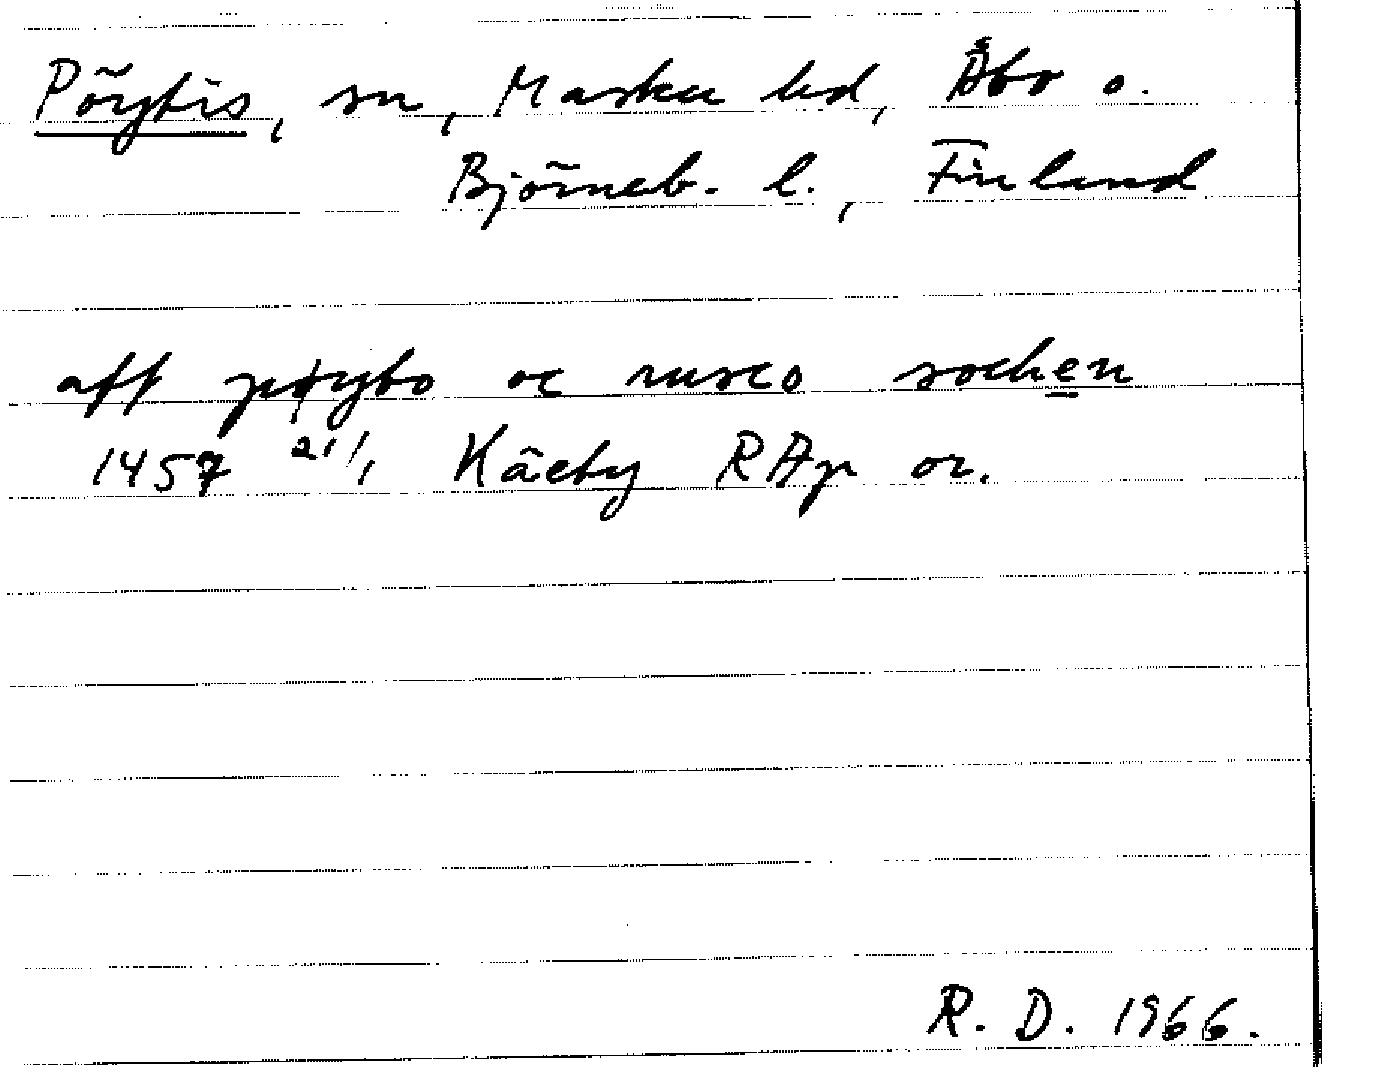 Pöytis, sn, Masku hd, Åbo o.
Björneb. l., Finland
aff pøybo oc rusco sochen
1457 21/1 Käeby RAp or.
R. D. 1966.